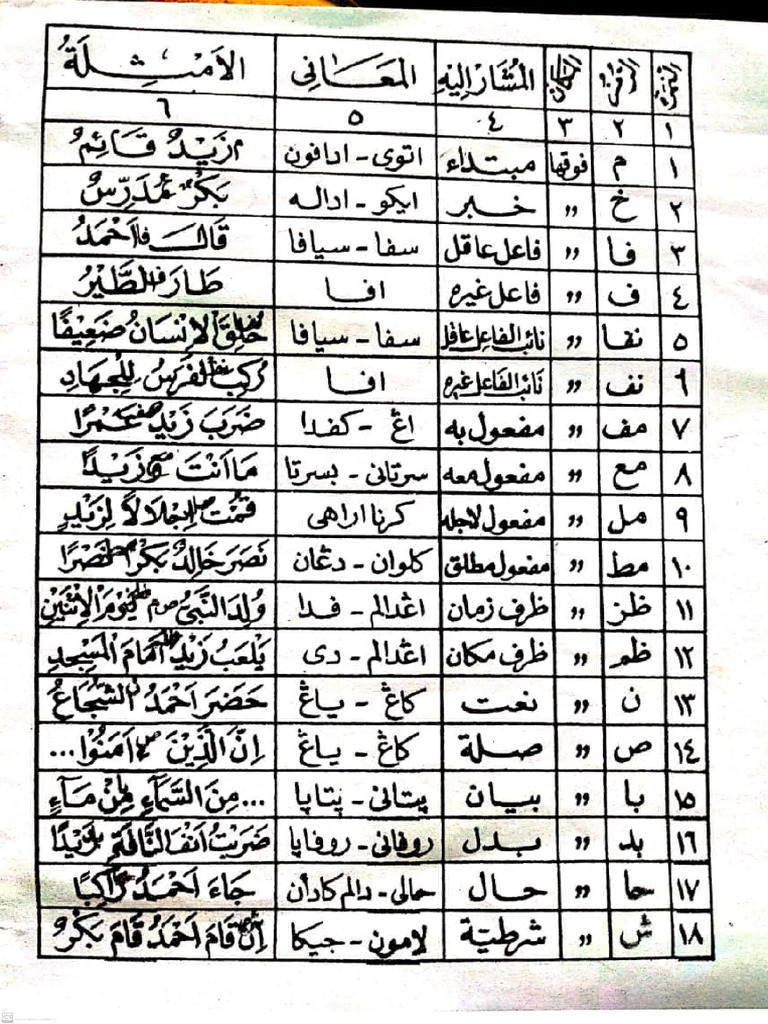 النمرة الرمز المكان المشار إليه المعانى الأمثلة
١ ٢ ٣ ٤ ٥ ٦
١ م فوقها مبتداء اتوى - ادافون زَيْدٌ قَائِمٌ
٢ خ ,, خبر ايكو - اداله بَكْرٌ مُدَرِّسٌ
٣ فا ,, فاعل عاقل سفا - سيافا قَالَ أَحْمَدُ
٤ ف ,, فاعل غيره افا طَارَ الطَّيْرُ
٥ نفا ,, نائب الفاعل عاقل سفا - سيافا خُلِقَ الْإِنْسَانُ ضَعِيفًا
٦ نف ,, نائب الفاعل غيره افا رُكِبَ الْفَرَسُ لِلْجِهَادِ
٧ مف ,, مفعول به اڠ - كفدا ضَرَبَ زَيْدٌ عَمْرًا
٨ مع ,, مفعول معه سرتانى - بسرتا مَا أَنْتَ وَزَيْدًا
٩ مل ,, مفعول لاجله كرنا اراهى قُمْتُ إِجْلَالًا لِزَيْدٍ
١٠ مط ,, مفعول مطلق كلوان - دڠان نَصَرَ خَالِدٌ بَكْرًا نَصْرًا
١١ ظز ,, ظرف زمان اڠدالم - فدا وُلِدَ النَّبِيُّ ص م يَوْمَ الْإِثْنَيْنِ
١٢ ظم ,, ظرف مكان اڠدالم - دى يَلْعَبُ زَيْدٌ أَمَامَ الْمَسْجِدِ
١٣ ن ,, نعت كاڠ - ياڠ حَضَرَ أَحْمَدُ الشُّجَاعُ
١٤ ص ,, صلة كاڠ - ياڠ إِنَّ الَّذِينَ آمَنُوا...
١٥ با ,, بيان پتانى - پتاپا ...مِنَ السَّمَاءِ مِنْ مَاءٍ
١٦ بد ,, بدل روفانى - روفاپا ضَرَبْتُ أَنْفَ النَّاقَةِ زَيْدًا
١٧ حا ,, حال حالى - دالم كادأن جَاءَ أَحْمَدُ رَاكِبًا
١٨ ش ,, شرطيّة لامون - جيكا إِنْ قَامَ أَحْمَدُ قَامَ بَكْرٌ